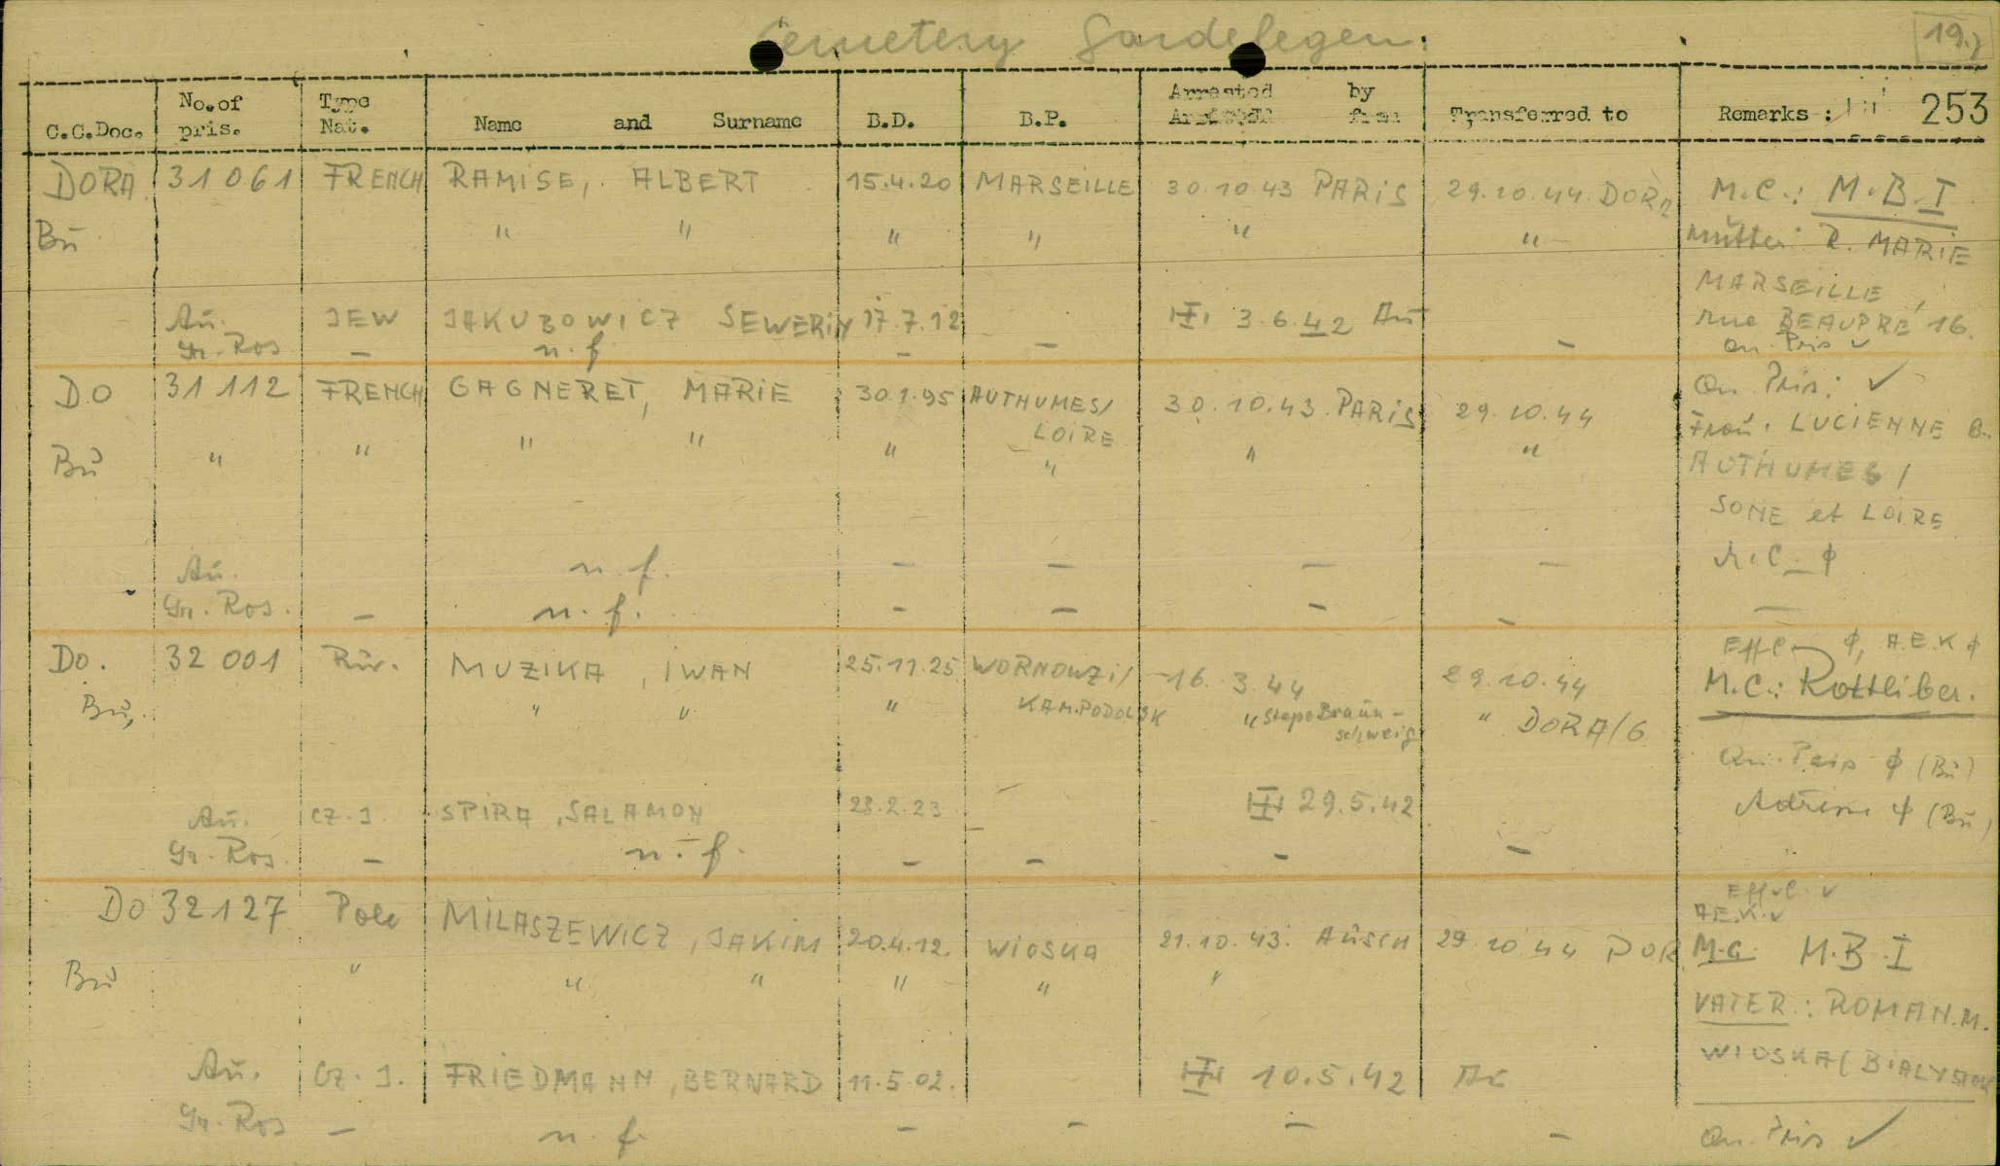 Cemetery Gardelegen.
19.)
C.C.Doc. No.of pris. Type Nat. Name and Surname B.D. B.P. Arrested by Transferred to Remarks : 253
DORA 31061 FRENCH RAMISE, ALBERT 15.4.20 MARSEILLE 30.10.43 PARIS 29.10.44 DORA M.C.: M.B.I
Bu " " " " " " Mutter: R. MARIE
MARSEILLE,
Au. JEW JAKUBOWICZ SEWERIN 17.7.12 - 3.6.42 Au rue BEAUPRE 16.
Gr. Ros - n.f - - - Qu. Pris ✓
DO 31112 FRENCH GAGNERET, MARIE 30.1.95 AUTHUMES/ LOIRE 30.10.43 PARIS 29.10.44 Qu. Pris: ✓
Frau. LUCIENNE
Bu " " " " " " " " AUTHUMES/
SONE et LOIRE
Au. n.f. - - - - M.C - φ
Gr. Ros. - n.f. - - - - -
Do. 32001 Rus. MUZIKA, IWAN 25.11.25 WORNOWZI/ 16.3.44 29.10.44 Eff.C - φ, A.E.K φ
M.C.: Rottleber.
Bu, " " " KAM.PODOLSK " Stapo Braun- schweig " DORA/6
Qu. Pris φ (Bu)
Au. CZ.J. SPIRA, SALAMON 28.2.23 - 29.5.42 Adresse φ (Bu)
Gr. Ros. - n.f. - - - -
DO 32127 Pole MILASZEWICZ, JAKIM 20.4.12. WIOSKA 21.10.43. AUSCH 29.10.44 DOR Eff.C ✓
AE.K.✓
M.C. M.B.I
Bu " " " " " "
VATER: ROMAN.M.
WIOSKA (BIALYSTOK
Au. CZ.J. FRIEDMANN, BERNARD 11.5.02. 10.5.42
Gr. Ros - n.f. - - - - Qu. Pris ✓